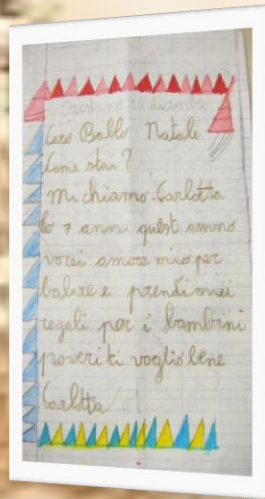 Caro Babbo Natale
Come stai?
Mi chiamo Carlotta
ho 7 anni quest anno
vorei amore mio per
balare e prendi miei
regali per i bambini
poveri ti voglio bene
Carlotta